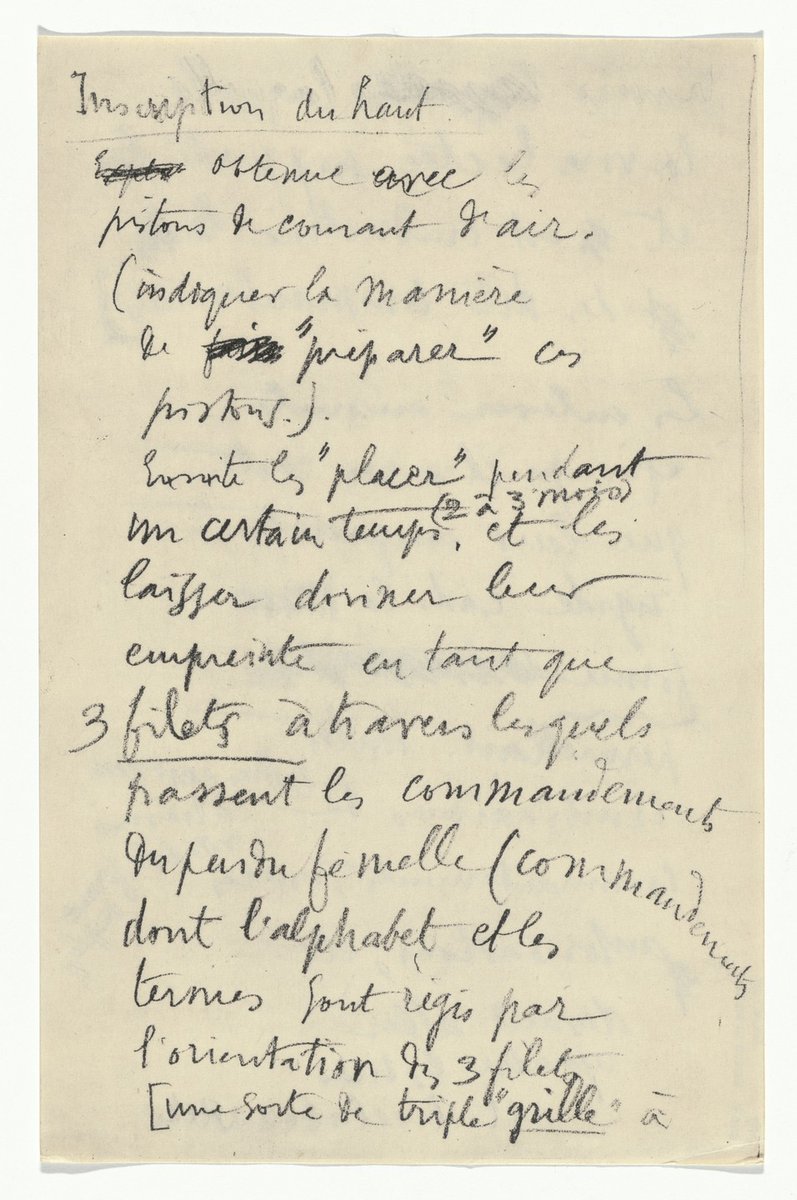 Inscription du haut.
obtenue avec les
pistons de courant d'air.
(indiquer la manière
de "préparer" ces
pistons.).
Ensuite les "placer" pendant
(2 à 3 mois)
un certain temps, et les
laisser dessiner leur
empreinte en tant que
3 filets à travers lesquels
passent les commandements
du pendu femelle (commandements
dont l'alphabet et les
termes sont régis par
l'orientation des 3 filets
[une sorte de triple "grille" à